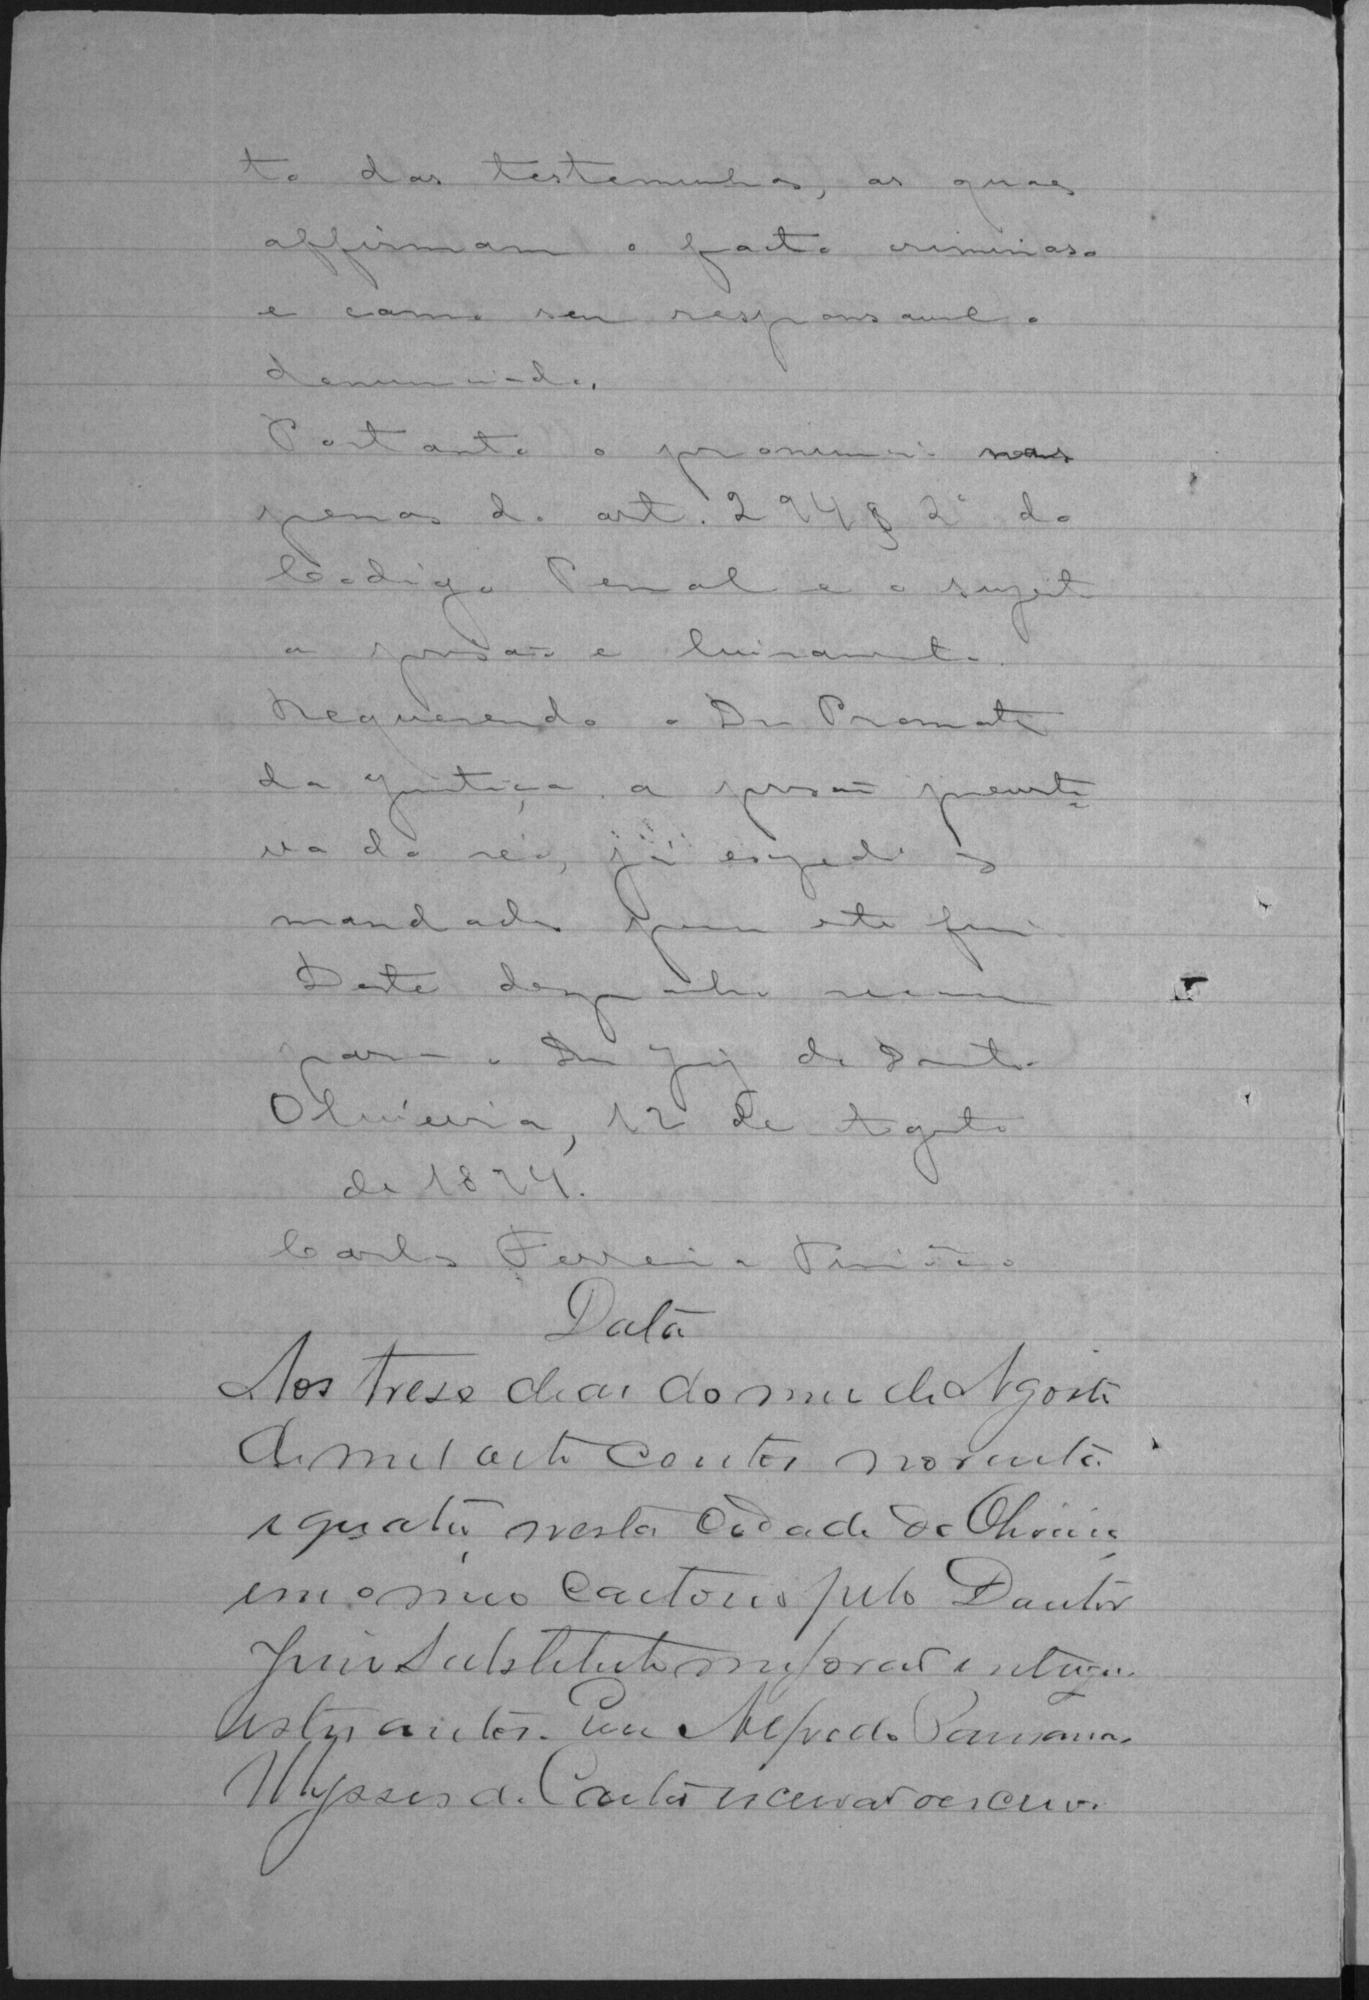 to das testemunhas, as quaes
affirmam o facto criminoso
e como seu responsavel o
denunciado.
Portanto o pronuncio nas
penas do art. 294 § 2º do
Codigo Penal e o sujeito
a prisão e livramento.
Requerendo o Dr Promotor
da Justiça a prisão preventi
va do réo, já expedi o
mandado para este fim.
Deste despacho recorro
para o Dr Juiz de Direito.
Oliveira, 12 de Agosto
de 1894.
Carlos Ferreira
Data
Aos trese dias do mes de Agosto
de mil oito centos noventa
e quatro, nesta Cidade de Oliveira
em o meo Cartorio pelo Doutor
Juiz Substituto me forão entregues
estes autos. Eu Alfredo
Ulysses da Costa escrivão o escrevi.